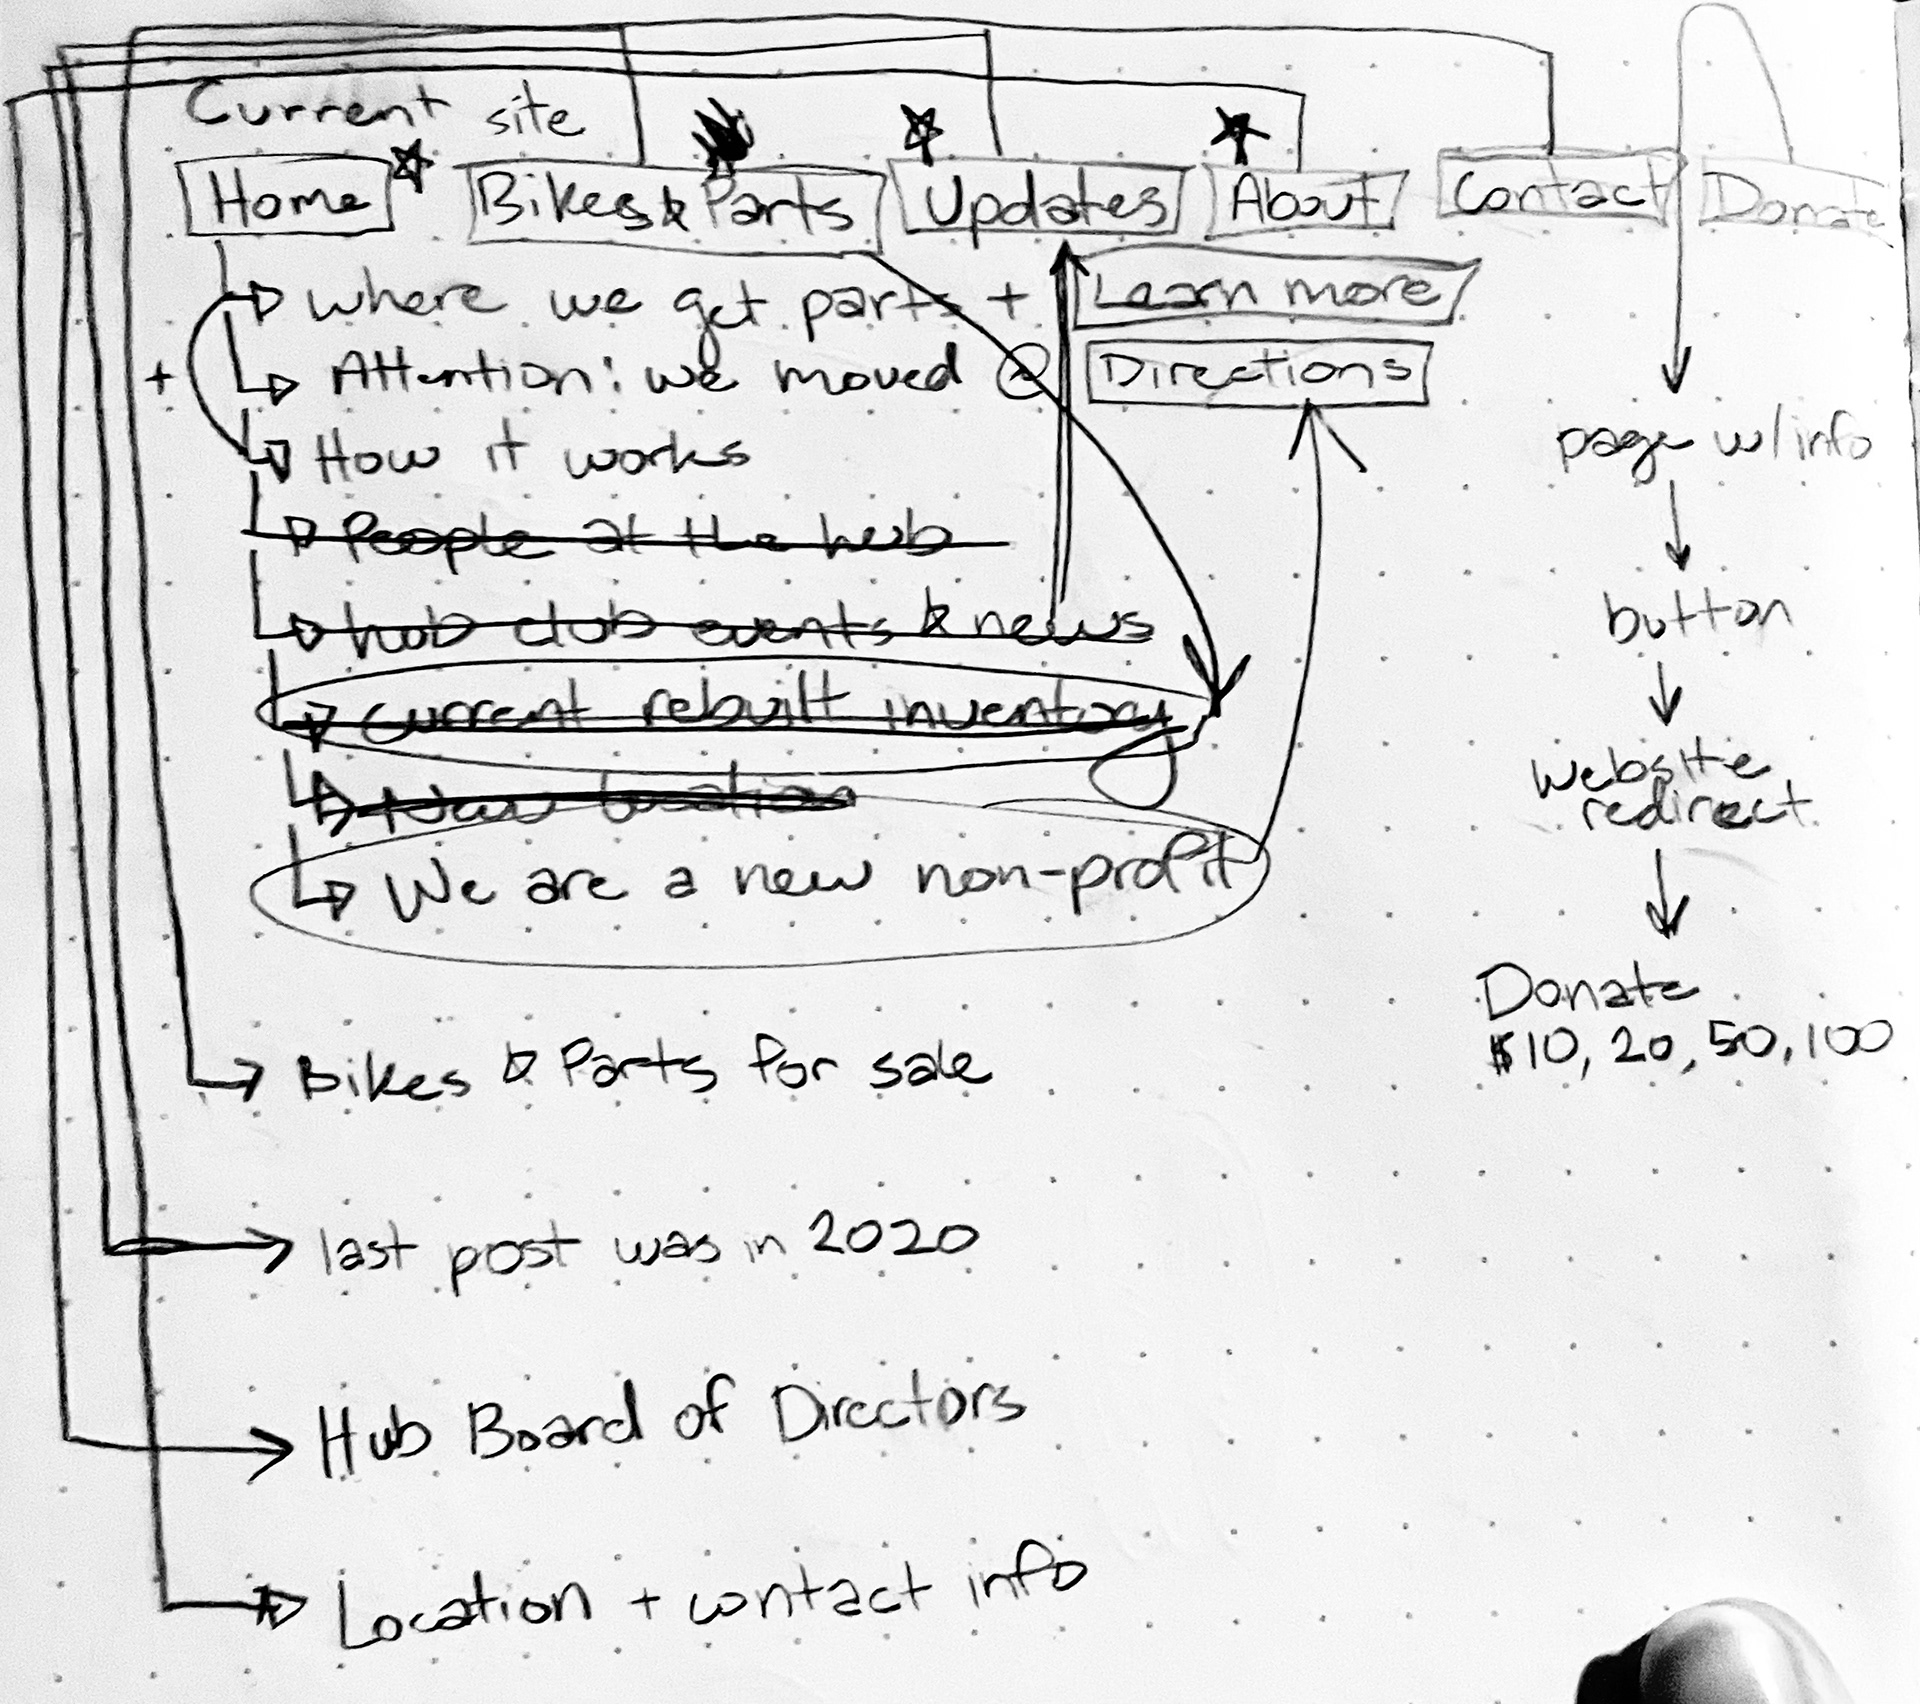 Current site
Home Bikes & Parts Updates About Contact Donate
where we get parts + Learn more
Attention: we moved @ Directions
How it works
+
People at the hub
hub club events & news
current rebuilt inventory
New location
We are a new non-profit
Bikes & Parts for sale
last post was in 2020
Hub Board of Directors
Location + contact info
page w/info
button
website
redirect
Donate
$10, 20, 50, 100